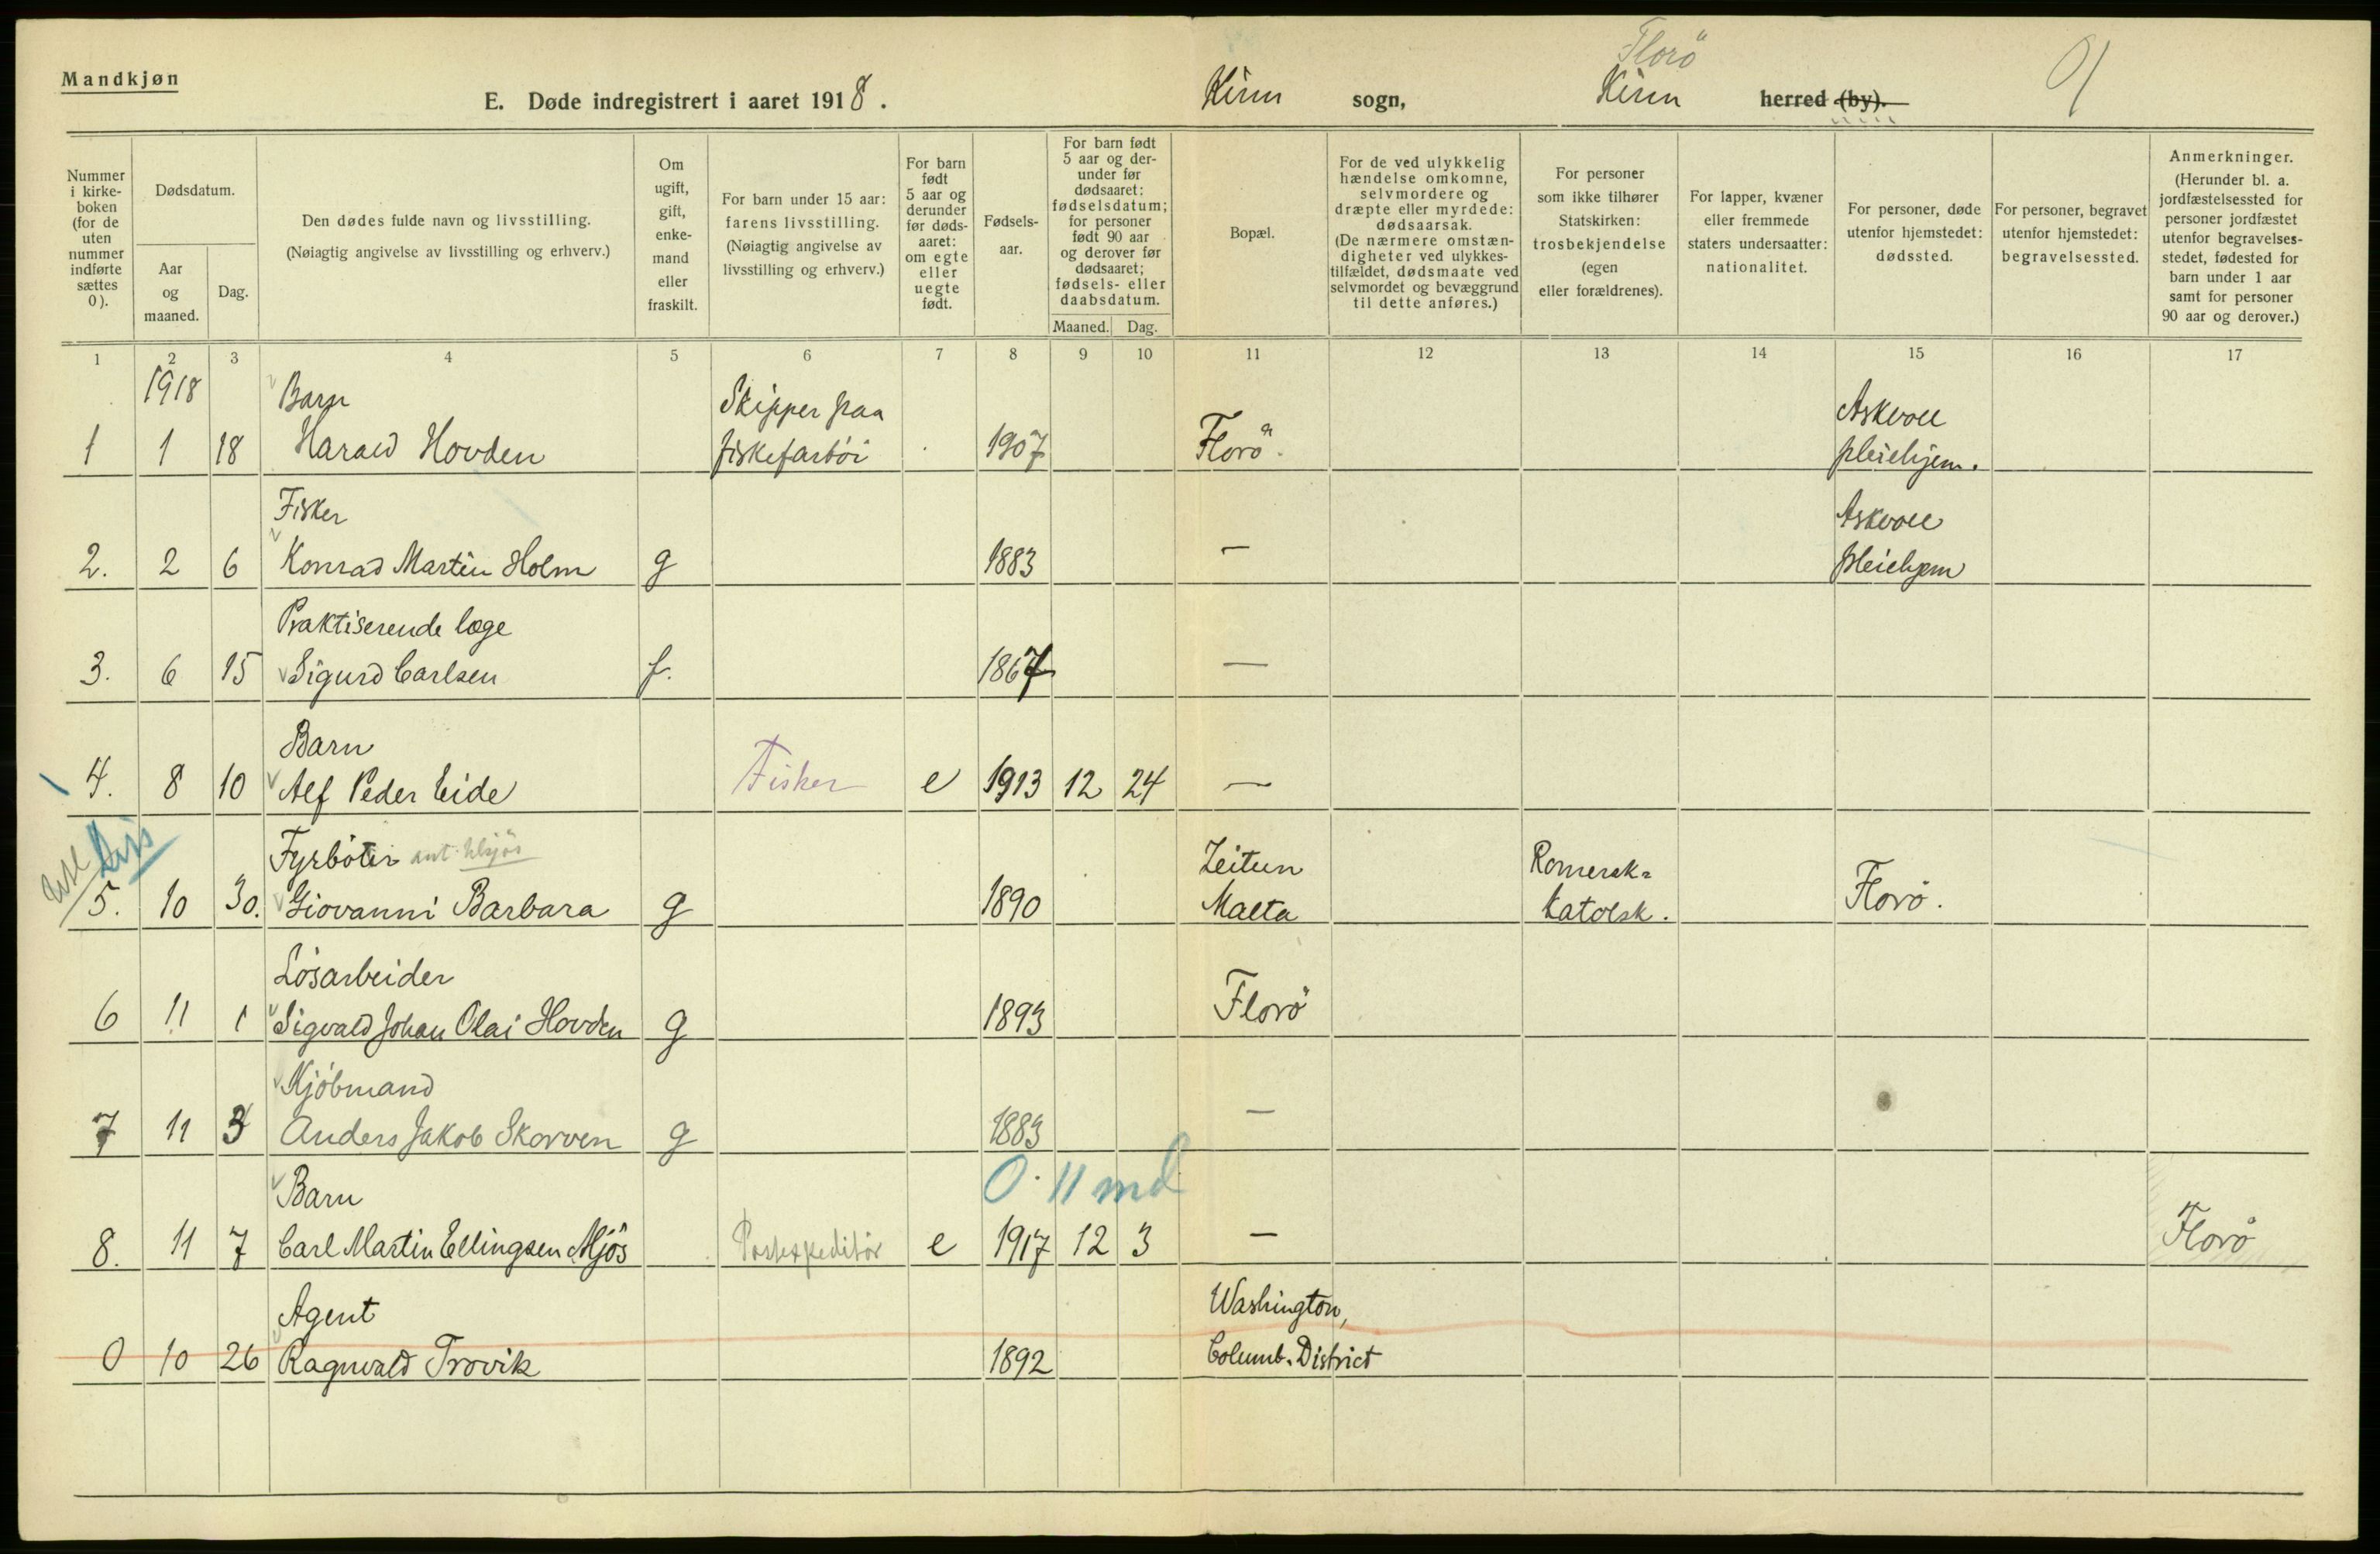 Florö
Mandkjøn
E. Døde indregistrert i aaret 1918.
Kinn sogn, Kinn herred (by).
Nummer i kirke-boken (for de uten nummer indførte sættes 0).
Dødsdatum.
Aar og maaned.
Dag.
Den dødes fulde navn og livsstilling.
(Nøiagtig angivelse av livsstilling og erhverv.)
Om ugift, gift, enke-mand eller fraskilt.
For barn under 15 aar: farens livsstilling. (Nøiagtig angivelse av livsstilling og erhverv.)
For barn født 5 aar og derunder før døds-aaret: om egte eller uegte født.
Fødsels-aar.
For barn født 5 aar og der-under før dødsaaret: fødselsdatum; for personer født 90 aar og derover før dødsaaret; fødsels- eller daabsdatum.
Maaned. Dag.
Bopæl.
For de ved ulykkelig hændelse omkomne, selvmordere og dræpte eller myrdede: dødsaarsak. (De nærmere omstæn-digheter ved ulykkes-tilfældet, dødsmaate ved selvmordet og bevæggrund til dette anføres.)
For personer som ikke tilhører Statskirken: trosbekjendelse (egen eller forældrenes).
For lapper, kvæner eller fremmede staters undersaatter: nationalitet.
For personer, døde utenfor hjemstedet: dødssted.
For personer, begravet utenfor hjemstedet: begravelsessted.
Anmerkninger. (Herunder bl. a. jordfæstelsessted for personer jordfæstet utenfor begravelses-stedet, fødested for barn under 1 aar samt for personer 90 aar og derover.)
1 2 3 4 5 6 7 8 9 10 11 12 13 14 15 16 17
1918 Barn Skipper paa Askvoll
1 1 18 Harald Hovden fiskefartöi 1907 Florö. pleiehjem.
Fisker Askvoll
2. 2 6 Konrad Martin Holm g 1883 — pleiehjem
Praktiserende læge
3. 6 15 Sigurd Carlsen f. 1867 —
Barn
4. 8 10 Alf Peder Eide Fisker e 1913 12 24 —
Fyrböter Zeitun Romersk=
5. 10 30. Giovanni Barbara g 1890 Malta katolsk. Florö.
Lösarbeider
6 11 1 Sigvald Johan Olai Hovden g 1893 Florö
Kjöbmand
7 11 3 Anders Jakob Skorven g 1883 —
Barn 0. 11 md
8. 11 7 Carl Martin Ellingsen Mjös Postexpeditör e 1917 12 3 — Florö
Agent Washington,
0 10 26 Ragnvald Trovik 1892 Columb. District